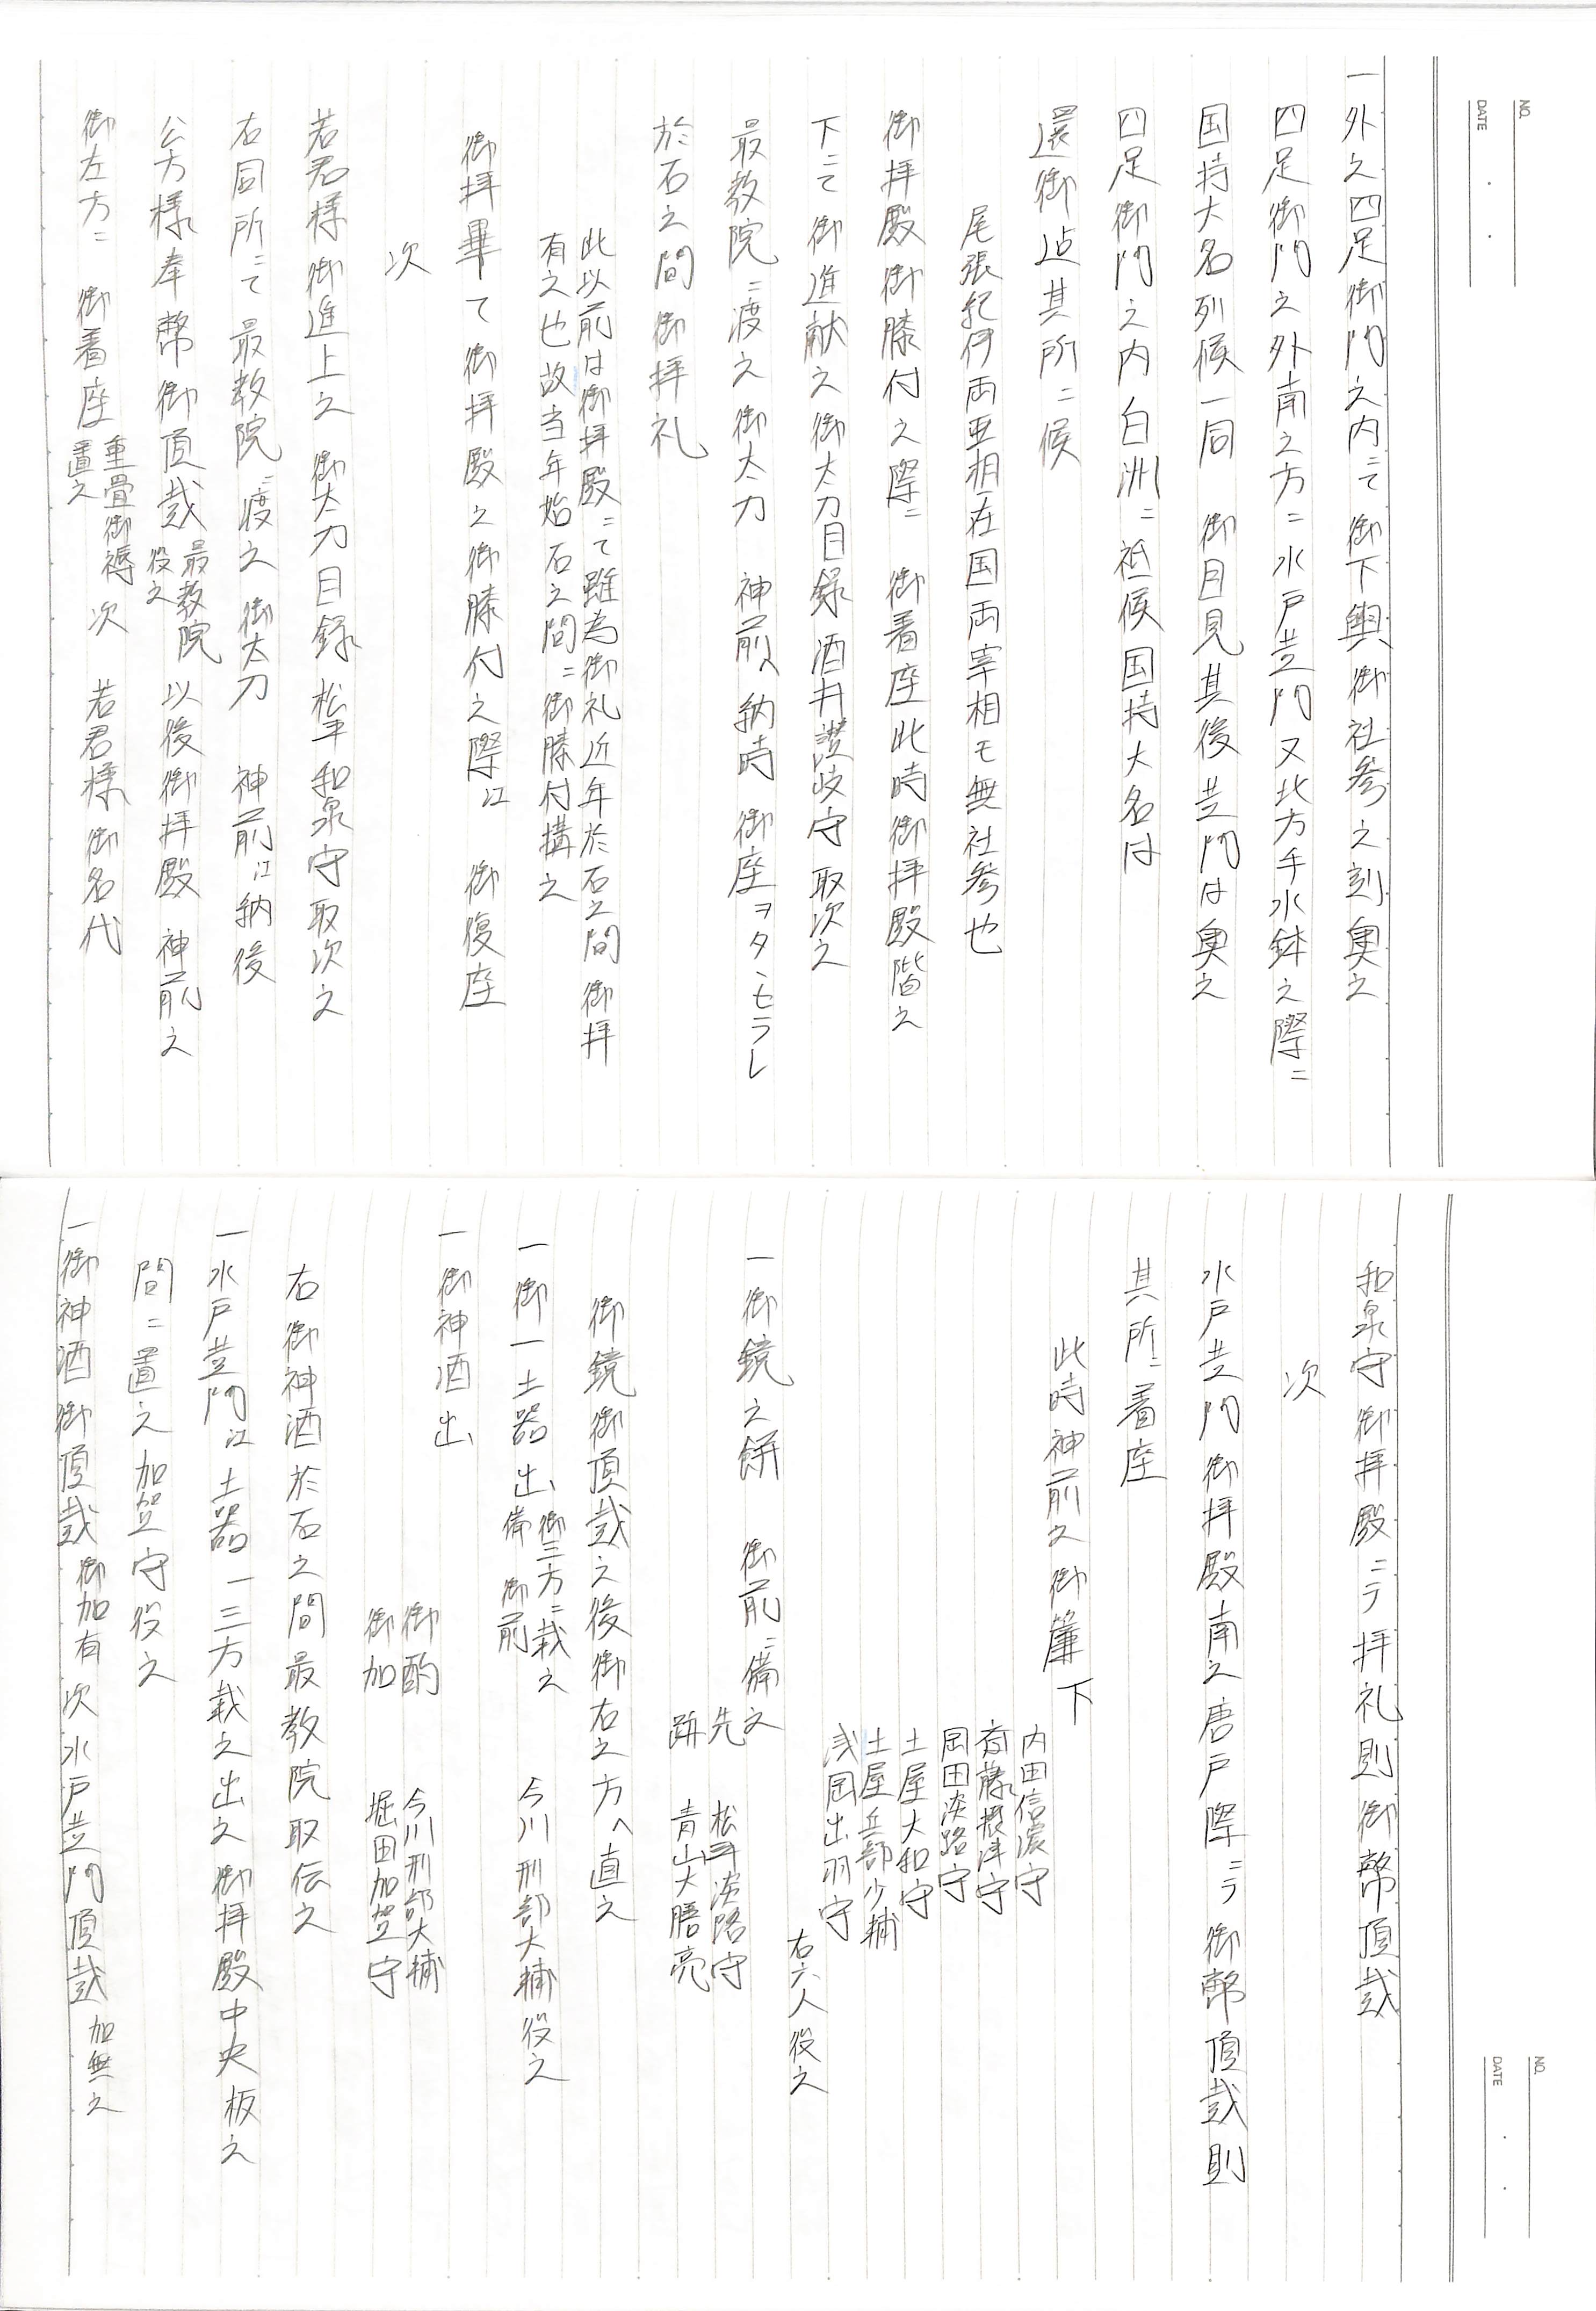 NO.
DATE
一外之四足御門之内ニて御下輿御社参之刻輿之
四足御門之外南之方ニ水戸黄門又北方手水鉢之際ニ
国持大名列候一同 御目見其後黄門は奥之
四足御門之内白洲ニ祗候国持大名は
還御迠其所ニ候
尾張紀伊両亜相在国両宰相モ無社参也
御拝殿御膝付之際ニ 御着座此時御拝殿階之
下ニて御進献之御太刀目録酒井讃岐守取次之
最教院ニ渡之御太刀 神前へ納時御座ヲタヽセラレ
於石之間御拝礼
此以前は御拝殿ニて雖為御礼近年於石之間御拝
有之也故当年始石之間ニ御膝付構之
御拝畢て御拝殿之御膝付之際江 御復座
次
若君様御進上之 御太刀目録松平和泉守取次之
右同所ニて最教院ニ渡之御太刀 神前江納後
公方様奉幣御頂戴 最教院役之 以後御拝殿 神前之
御左方ニ 御着座 重畳御褥置之 次 若君様御名代
NO.
DATE
和泉守御拝殿ニテ拝礼則御幣頂戴
次
水戸黄門御拝殿南之唐戸際ニテ御幣頂戴則
其所ニ着座
此時神前之御簾下
内田信濃守
斎藤摂津守
岡田淡路守
土屋大和守
土屋兵部少輔
浅岡出羽守
右六人役之
一御鏡之餅 御前ニ備之
先 松平淡路守
跡 青山大膳亮
御鏡御頂戴之後御右之方へ直之
一御一土器出 御三方ニ載之備 御前 今川刑部大輔役之
一御神酒出
御酌 今川刑部大輔
御加 堀田加賀守
右御神酒於石之間最教院取伝之
一水戸黄門江土器一三方載之出之御拝殿中央板之
間ニ置之加賀守役之
一御神酒御頂戴 御加有 次水戸黄門頂戴 加無之